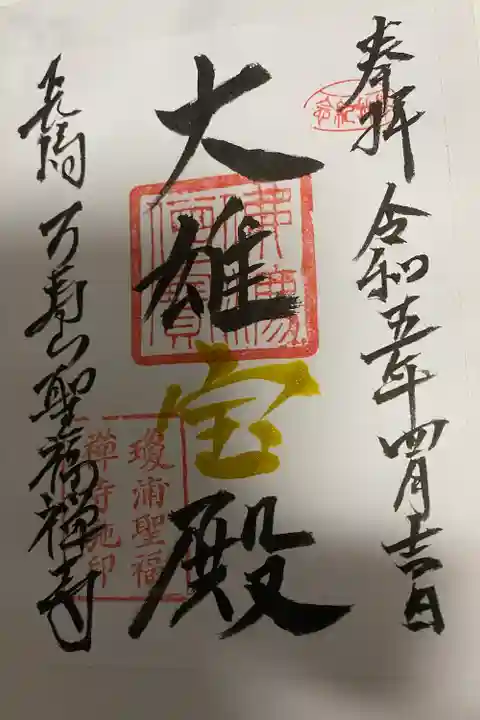 奉拝 令和五年四月吉日
大雄宝殿
長崎 万寿山聖福禅寺
瓊浦聖福
禅寺施印